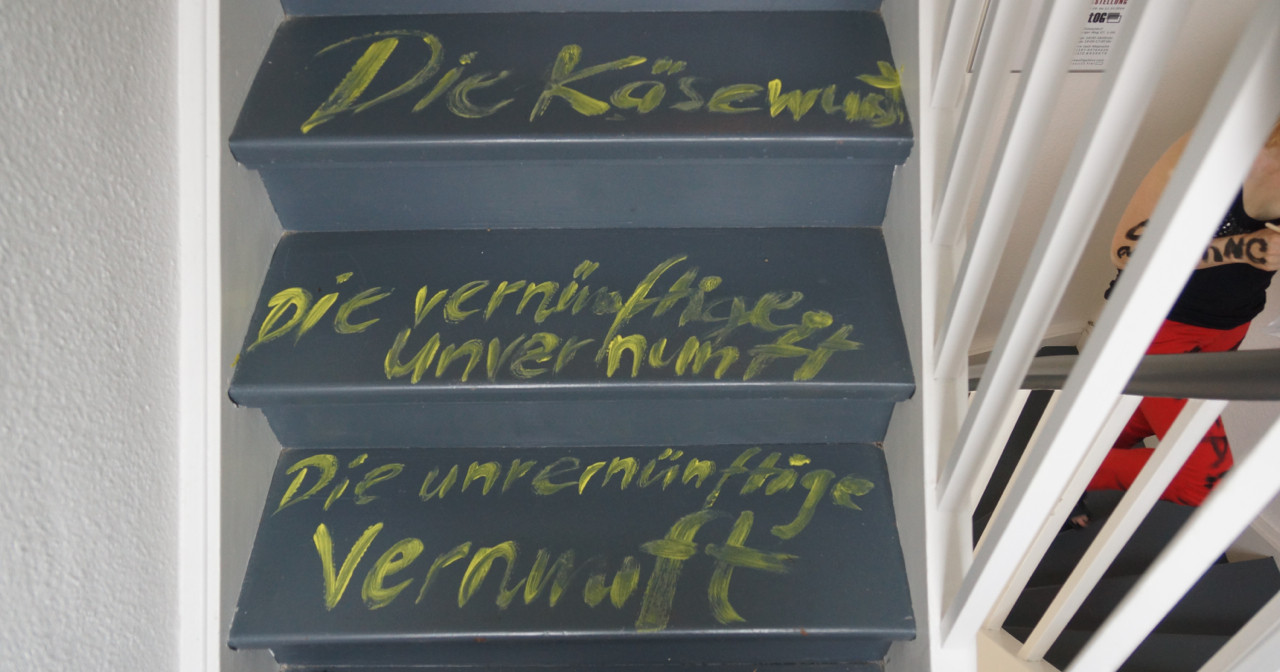 Die Käsewurst
Die vernünftige
unvernunft
Die unvernünftige
Vernunft
STELLUNG
tOG